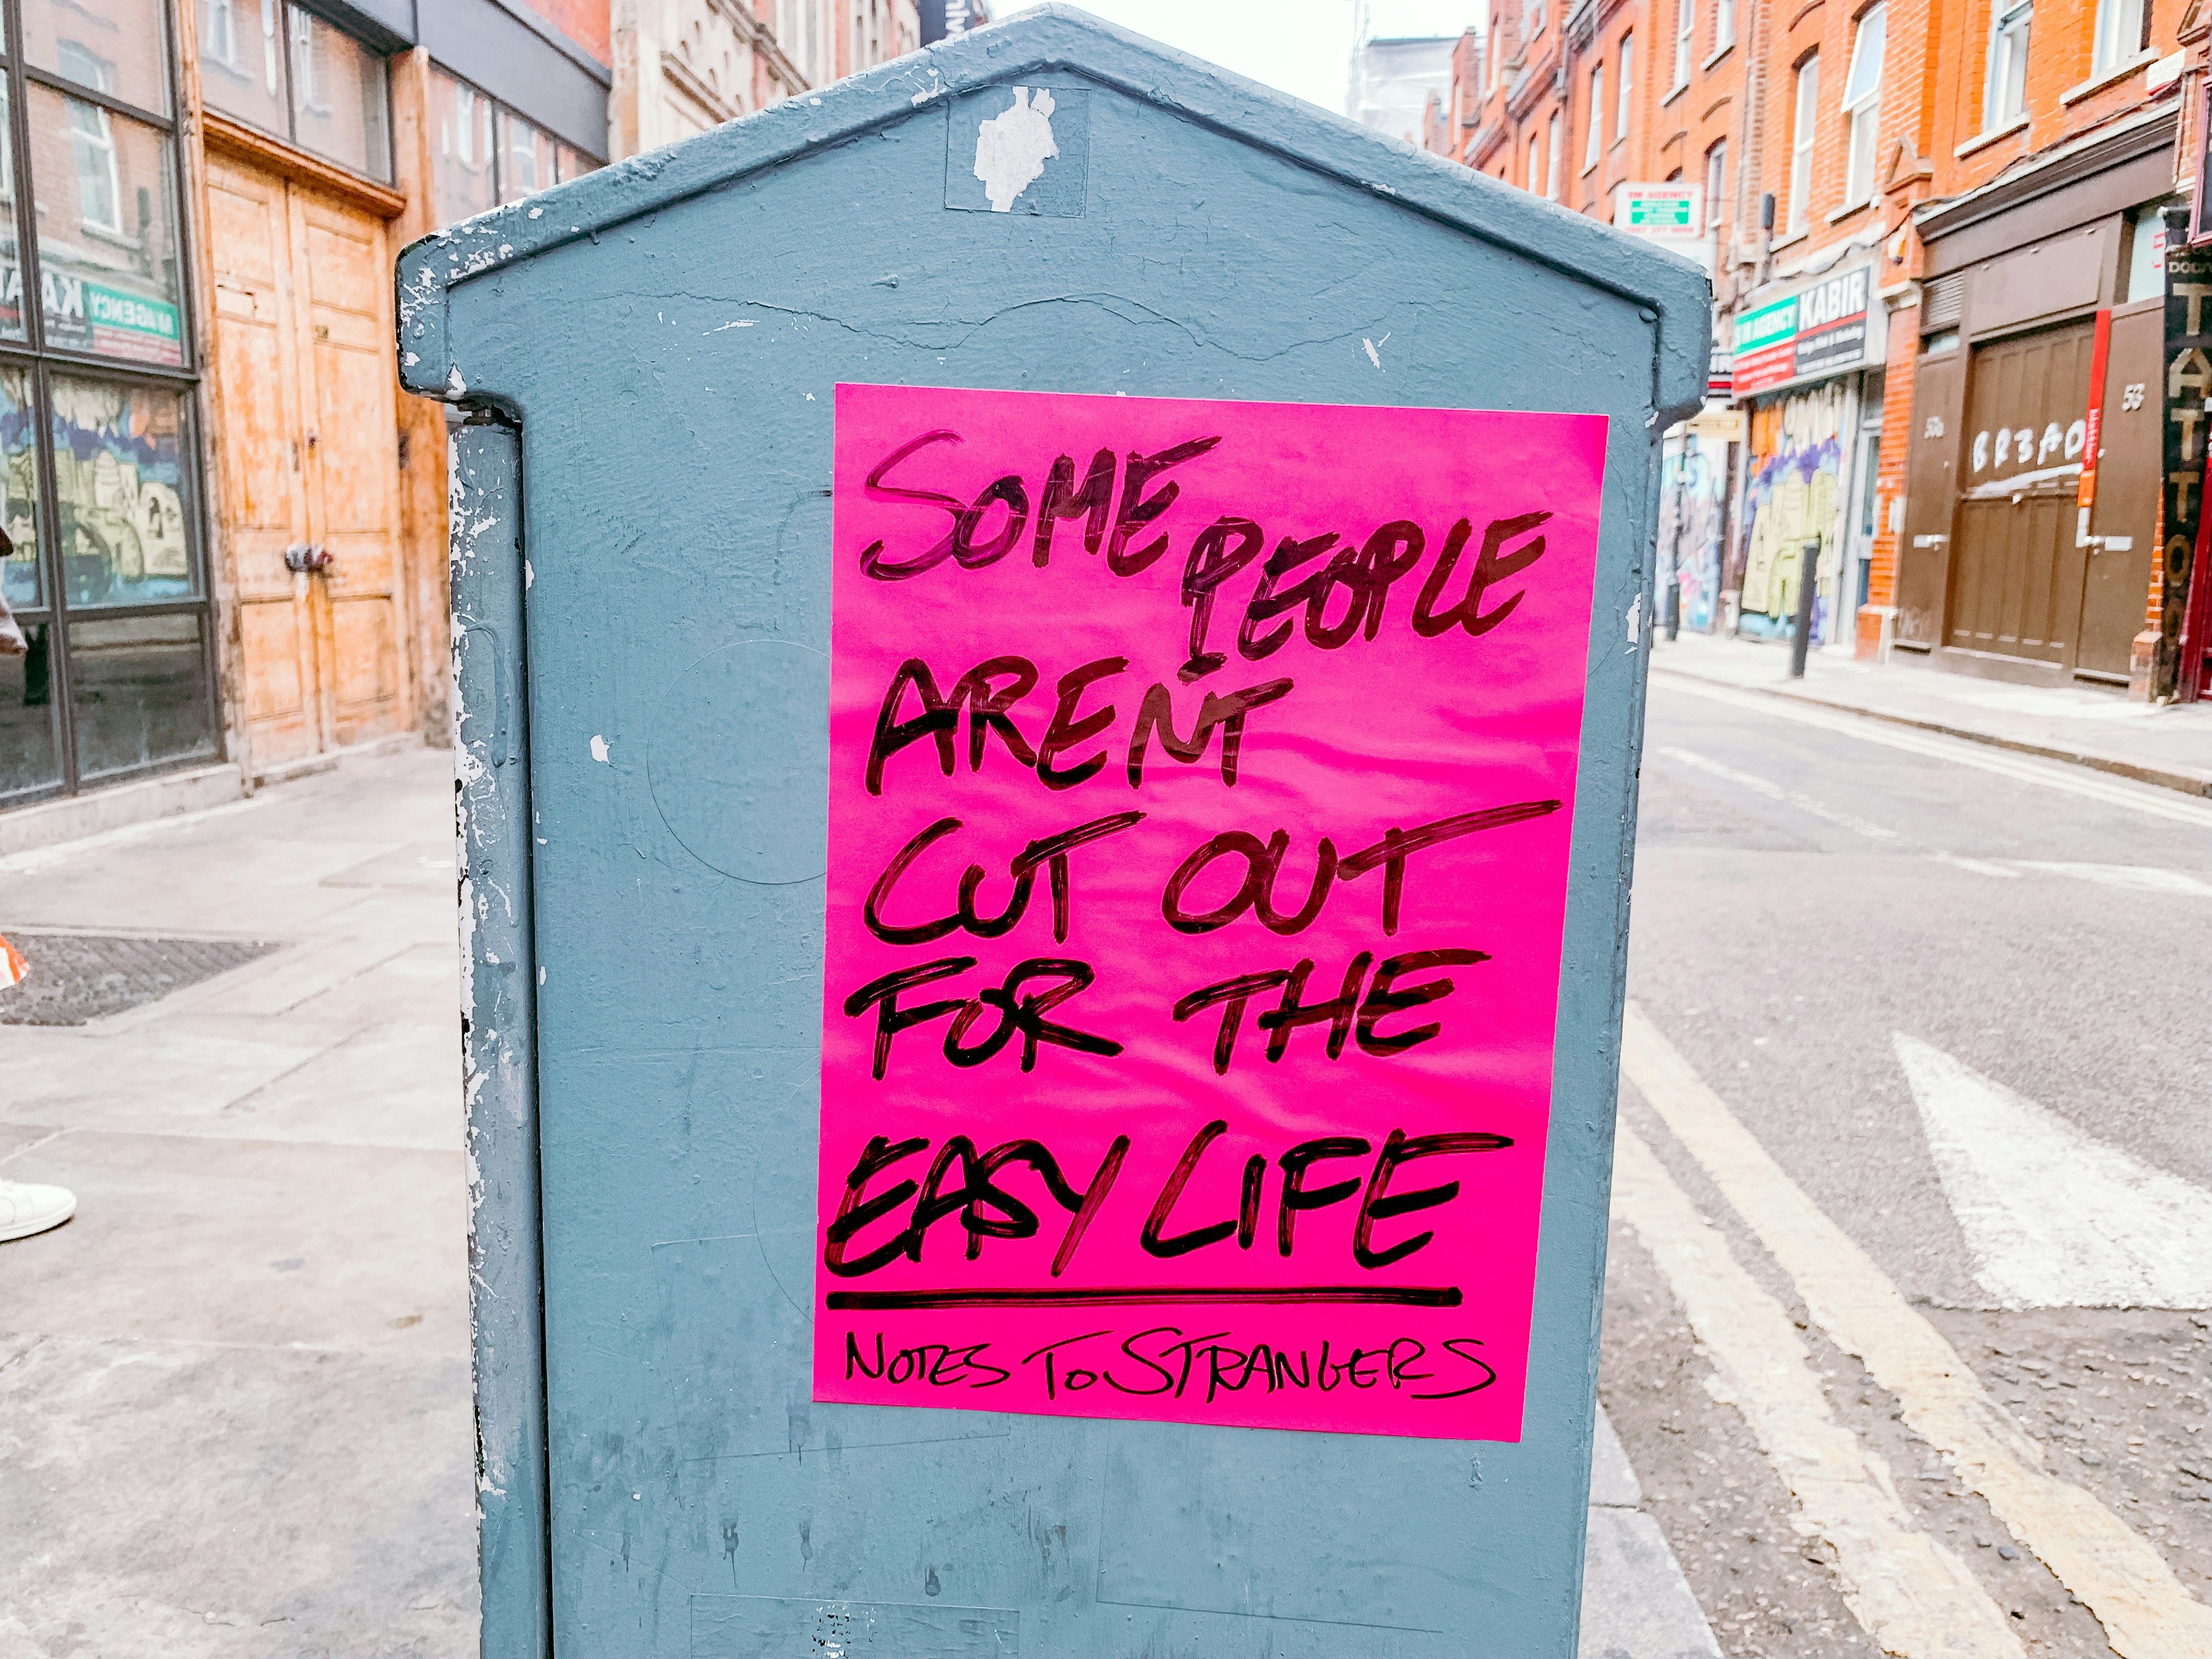 SOME PEOPLE
ARENT
CUT OUT
FOR THE
EASY LIFE
NOTES TO STRANGERS
KABIR
AGENCY
BR3AD
53
TATTOO